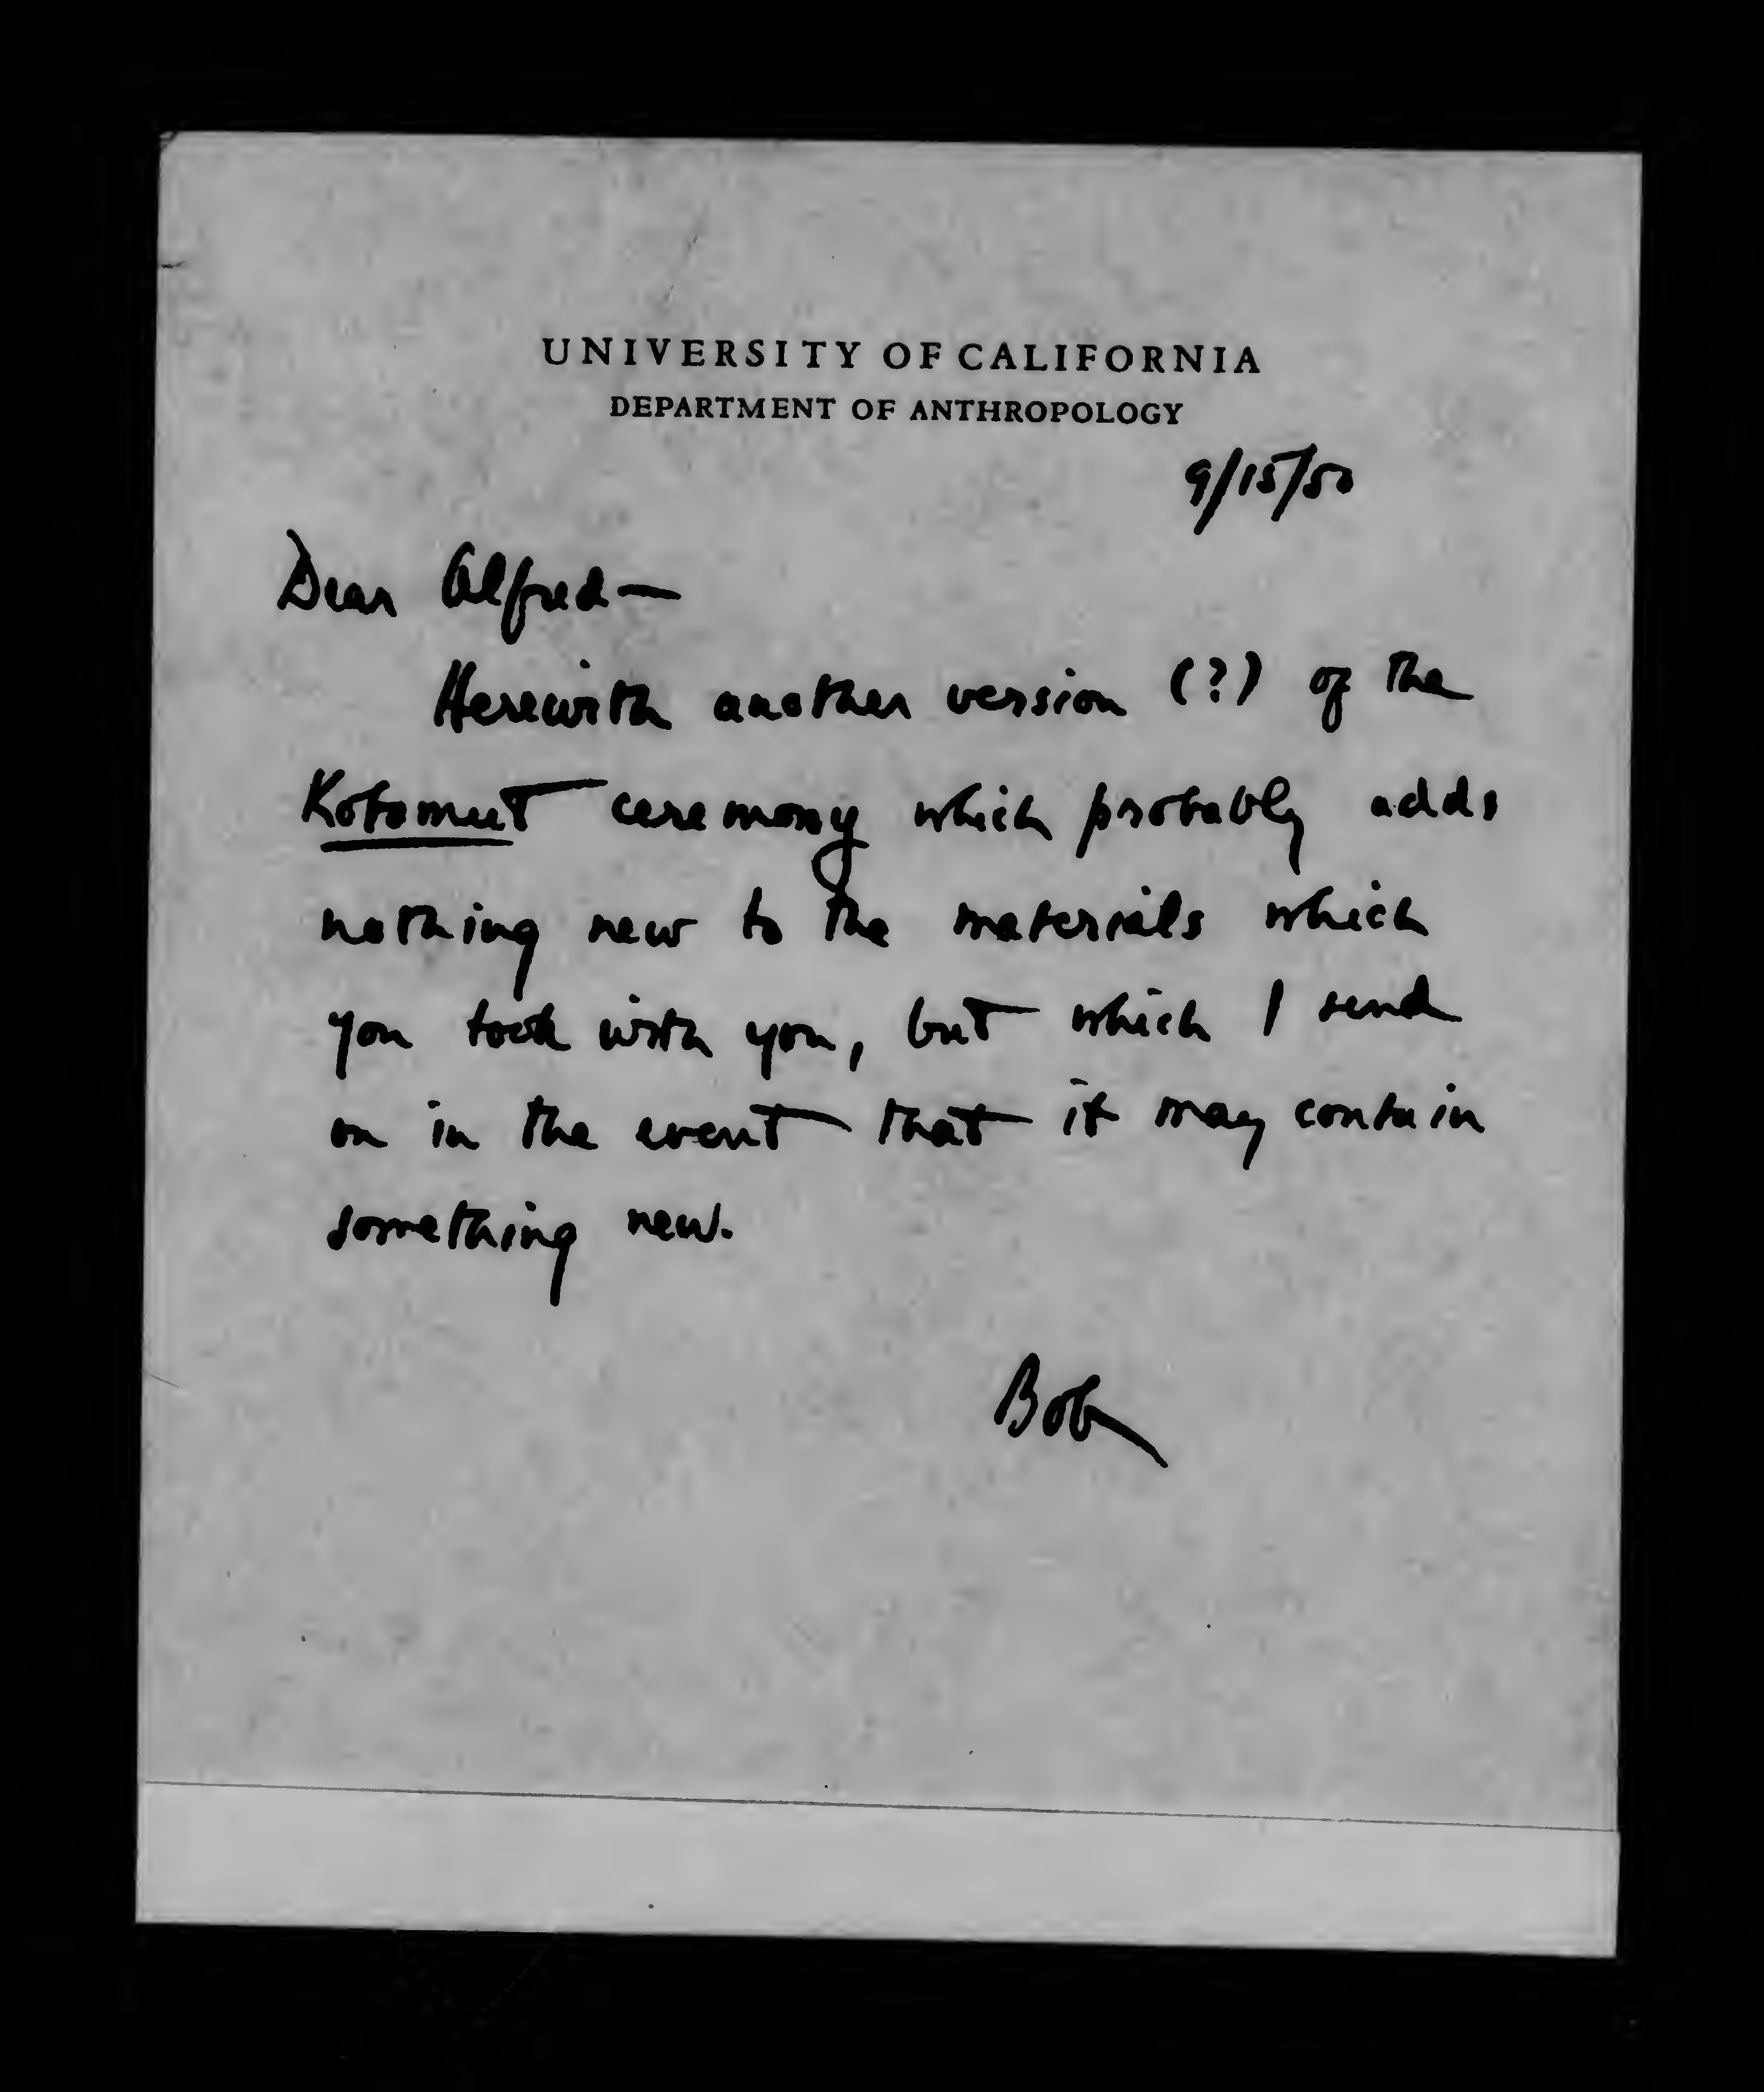 UNIVERSITY OF CALIFORNIA
DEPARTMENT OF ANTHROPOLOGY
9/15/50
Dear Alfred—
Herewith another version (?) of the
Kotomut ceremony which probably adds
nothing new to the materials which
you took with you, but which I send
on in the event that it may contain
something new.
Bob